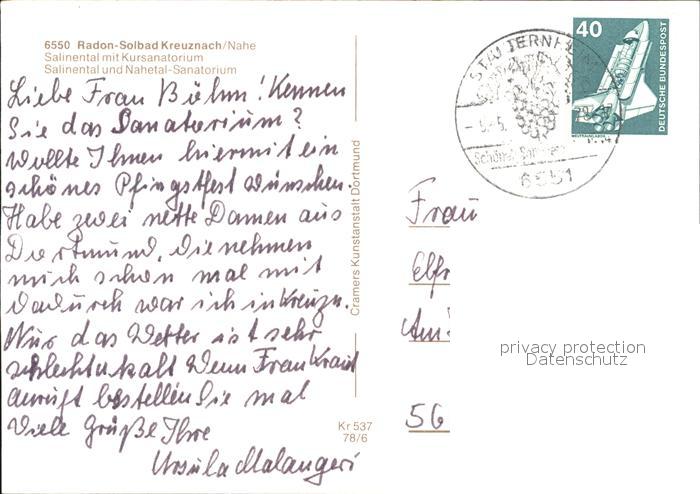 6550 Radon-Solbad Kreuznach/Nahe
Salinental mit Kursanatorium
Salinental und Nahetal-Sanatorium
Liebe Frau Böhm! Kennen
Sie das Sanatorium?
Wollte Ihnen hiermit ein
schönes Pfingstfest wünschen.
Habe zwei nette Damen aus
Dortmund, die nehmen
mich schon mal mit
Dadurch war ich in Kreuzn.
Nur das Wetter ist sehr
schlecht u. kalt Wenn Frau
anruft bestellen Sie mal
Viele Grüße Ihre
Ursula
Cramers Kunstanstalt Dortmund
Kr 537
78/6
40
DEUTSCHE BUNDESPOST
WELTRAUMLABOR
6551
Frau
Elfr
Am
56
privacy protection
Datenschutz